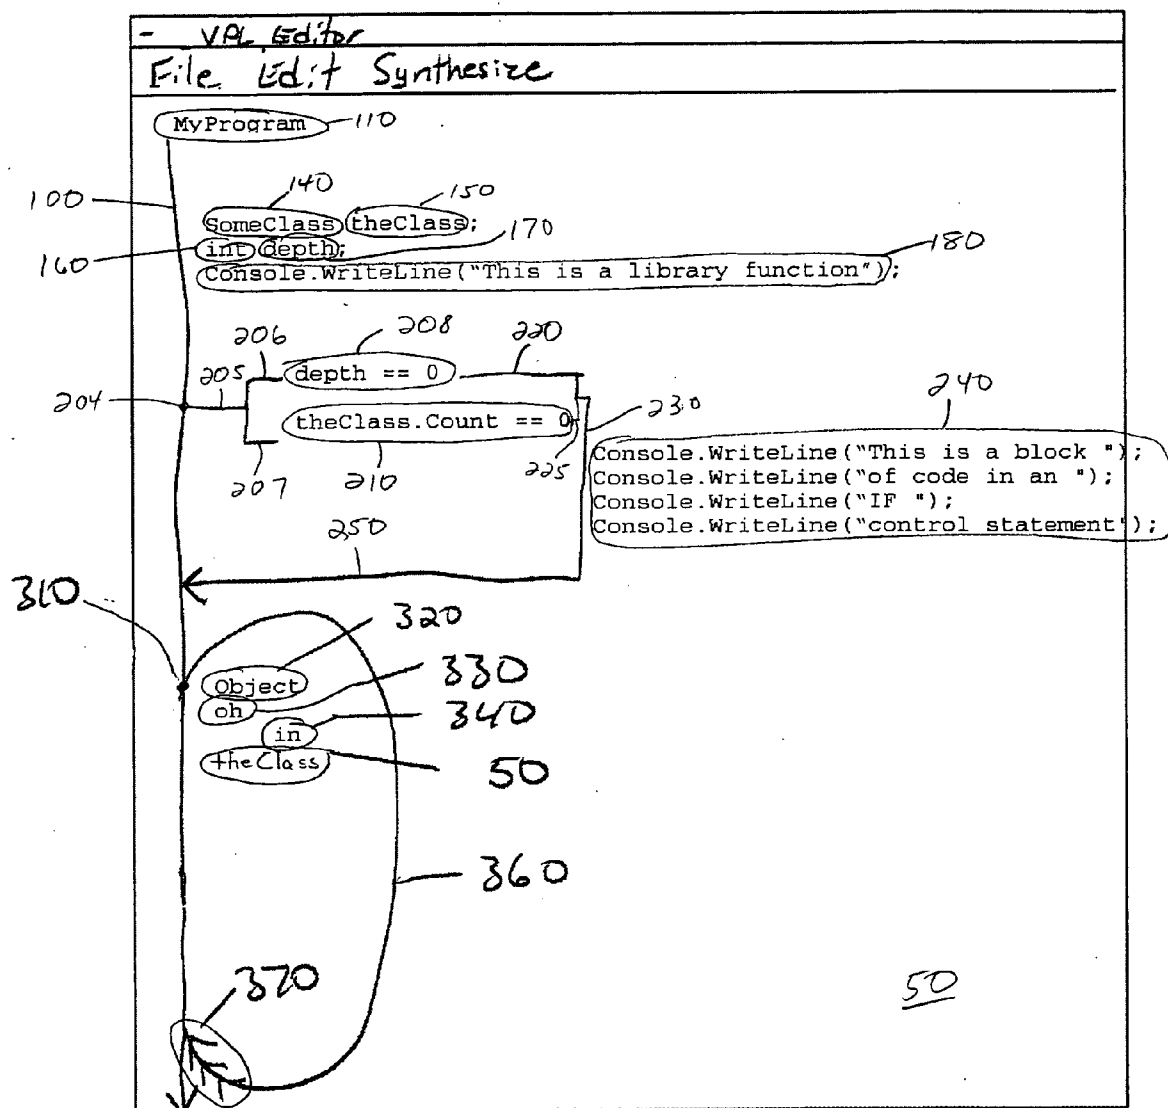 - VPL Editor
File Edit Synthesize
MyProgram 110
140 150
100
SomeClass theClass;
160 int depth; 170
Console.WriteLine("This is a library function"); 180
206 208 220
205 depth == 0 240
204 230
theClass.Count == 0
Console.WriteLine("This is a block ");
207 210 225 Console.WriteLine("of code in an ");
Console.WriteLine("IF ");
250 Console.WriteLine("control statement");
310
320
Object 330
oh 340
in
theClass 50
360
370
50